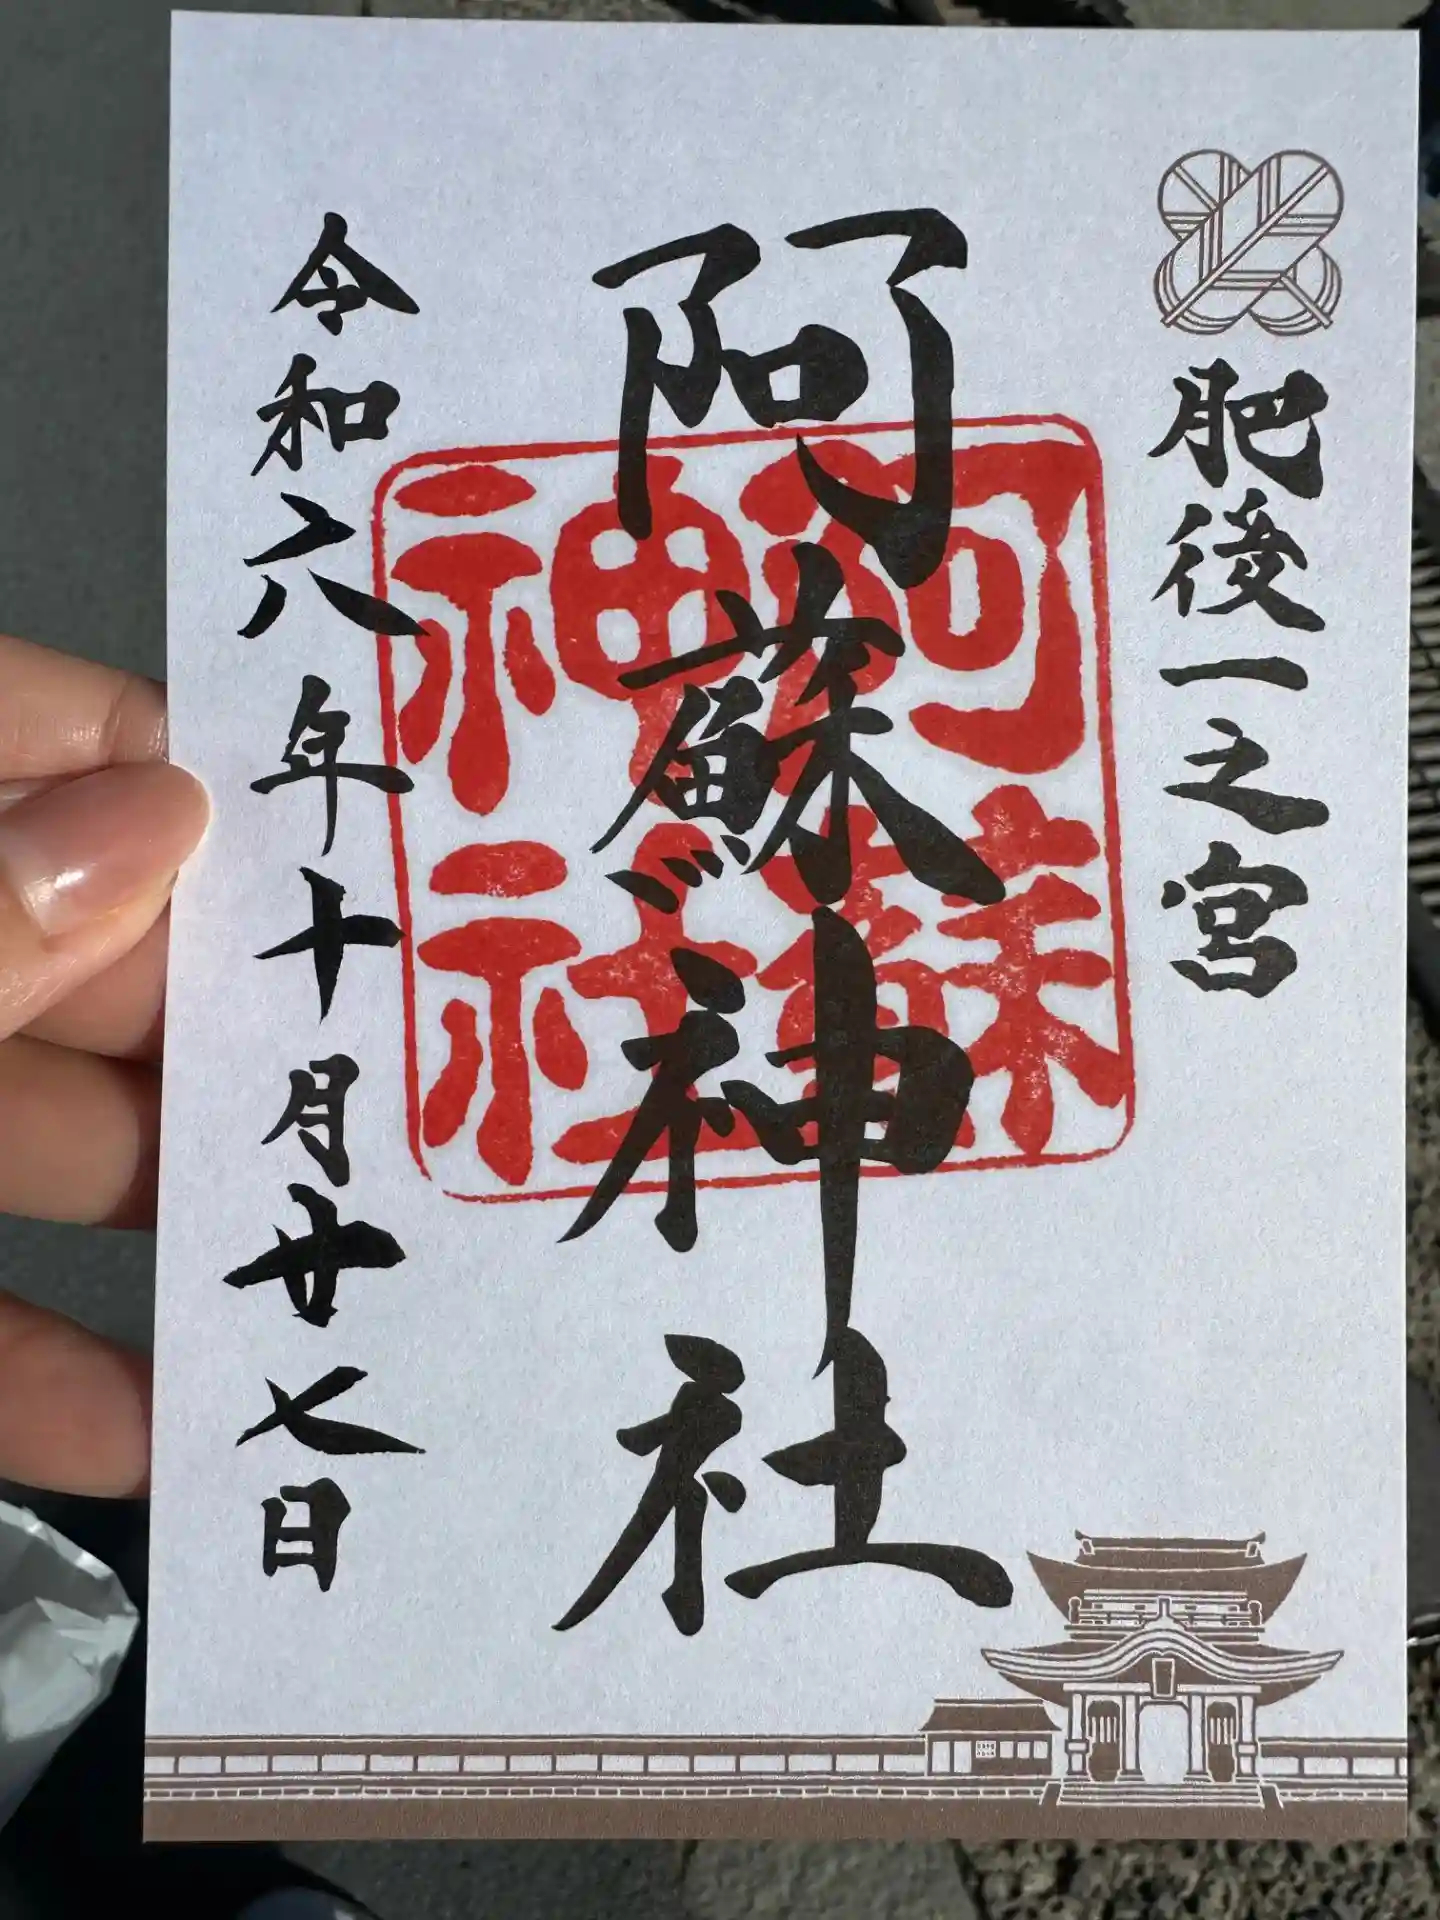 肥後一之宮
阿蘇神社
阿蘇
神社
令和六年十月廿七日